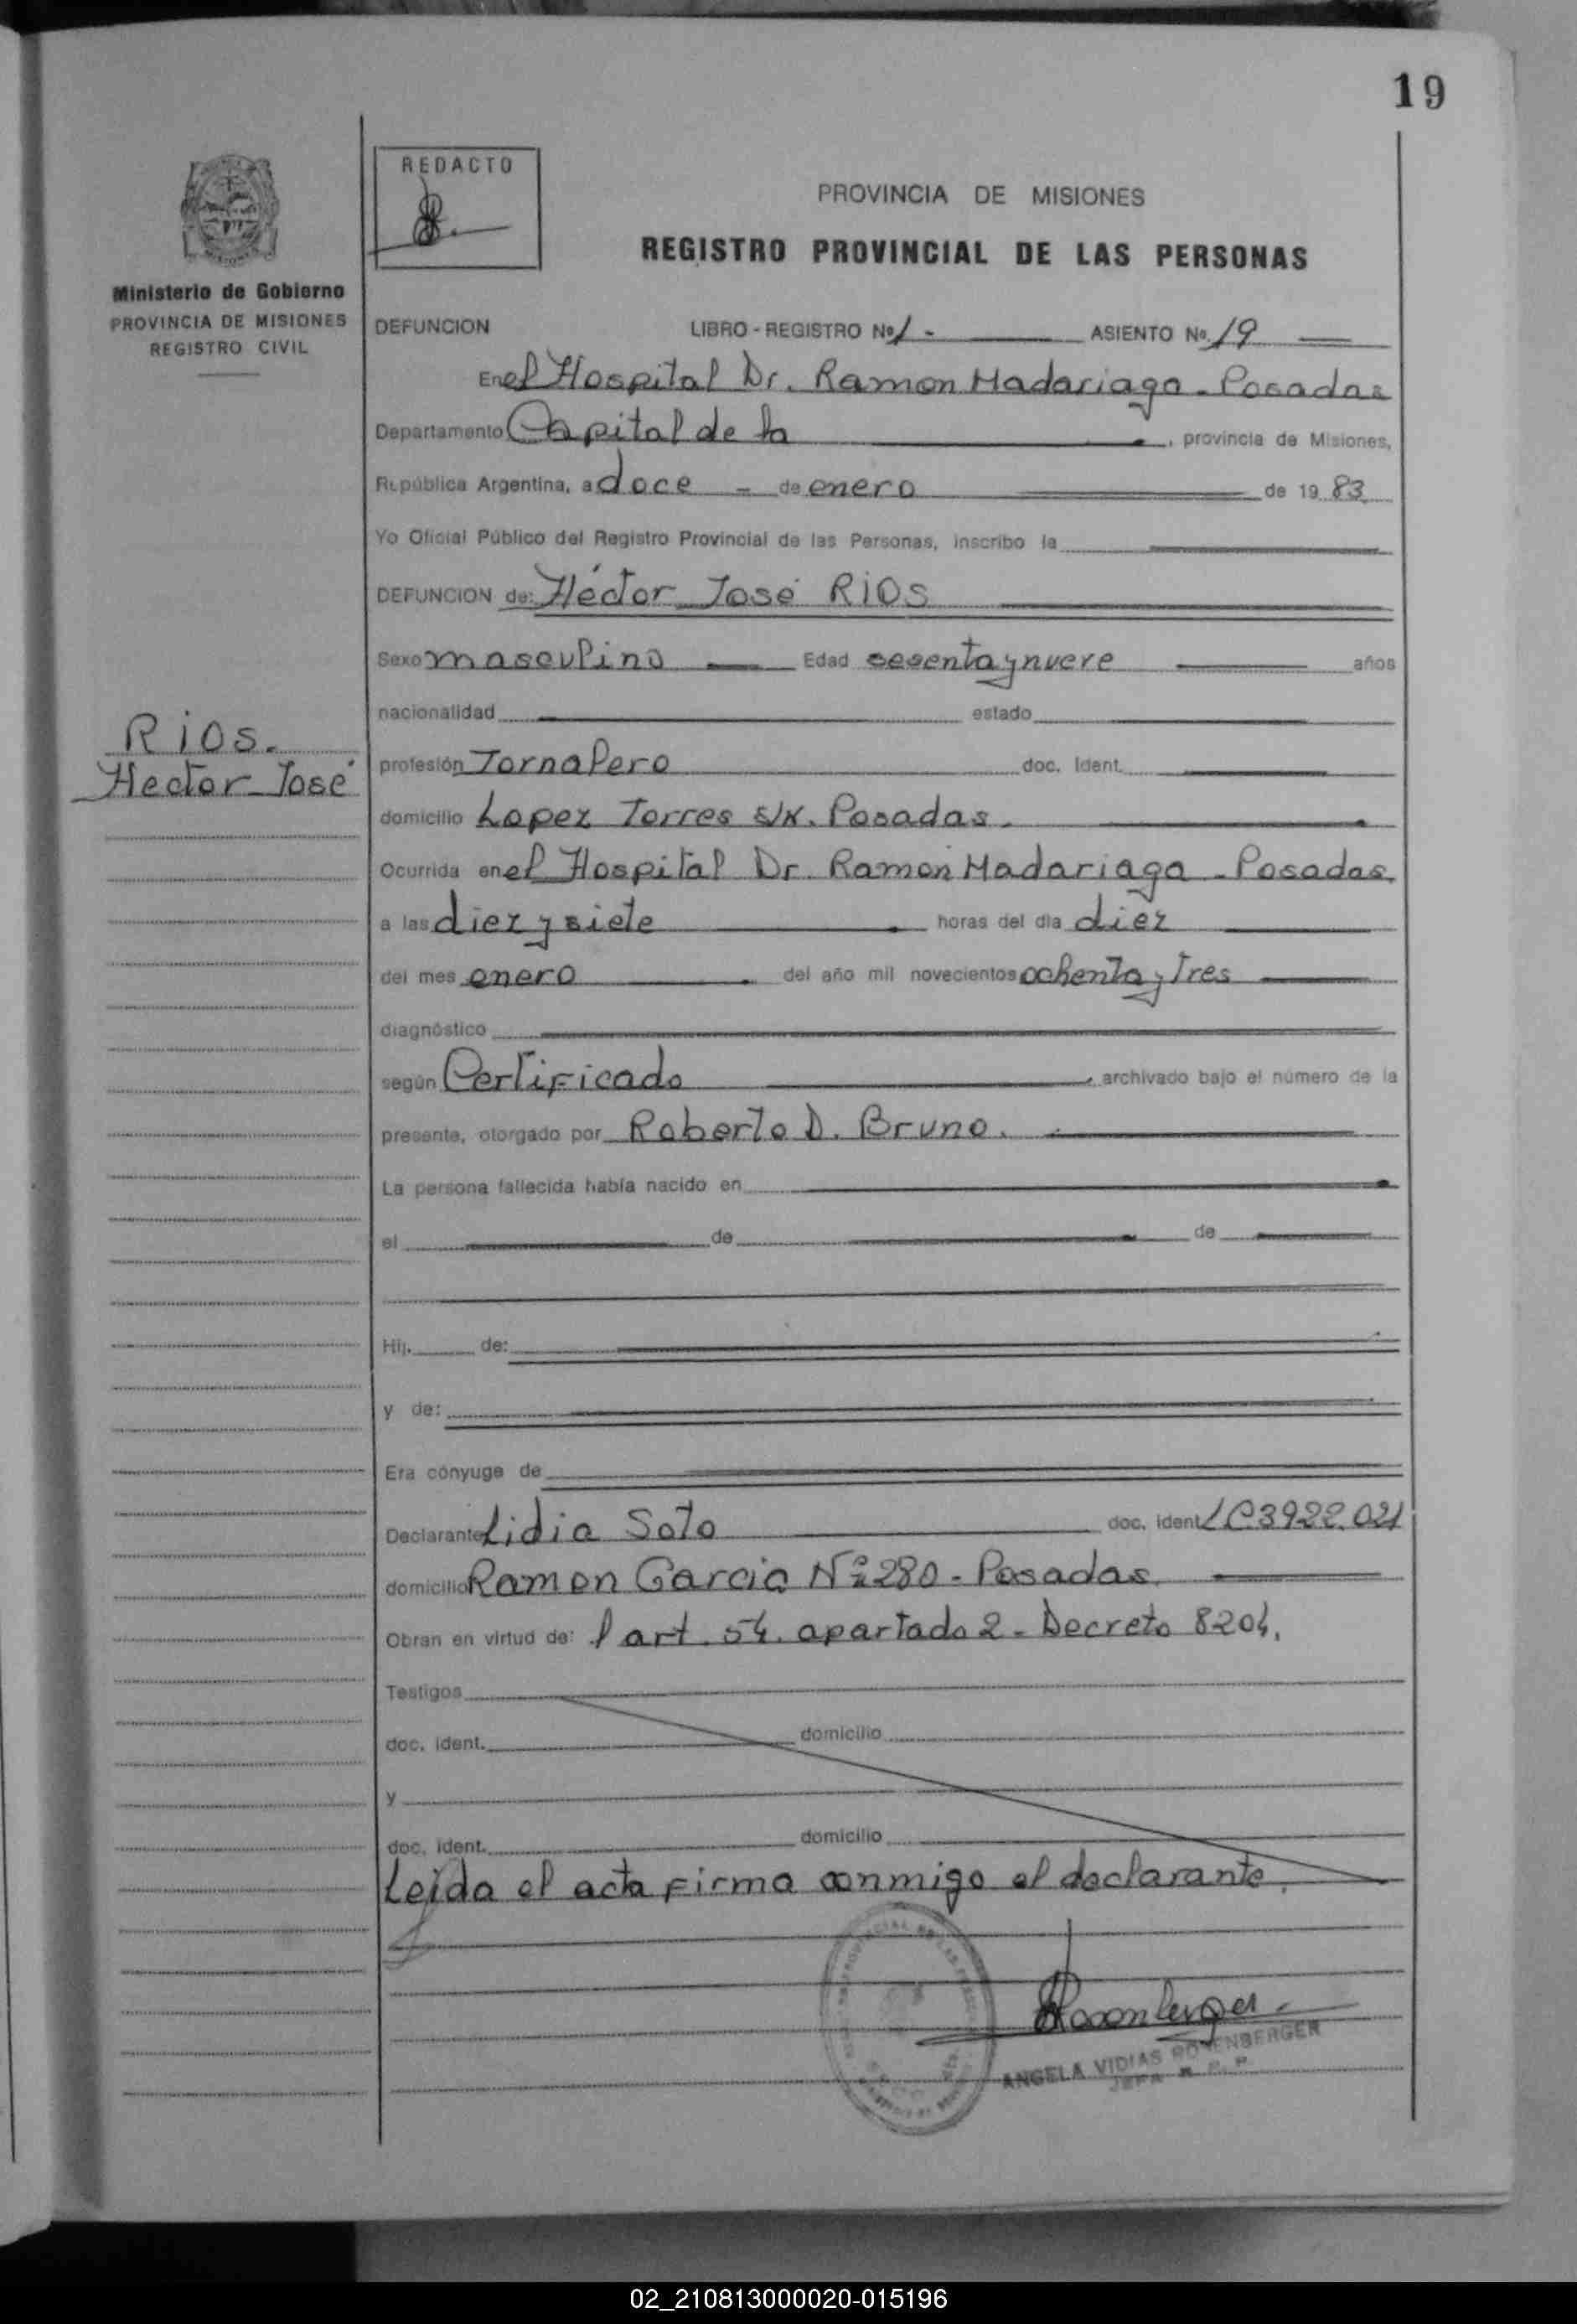 19
REDACTO
PROVINCIA DE MISIONES
REGISTRO PROVINCIAL DE LAS PERSONAS
Ministerio de Gobierno
PROVINCIA DE MISIONES
REGISTRO CIVIL
DEFUNCION LIBRO - REGISTRO No 1 - ASIENTO No. 19
En el Hospital Dr. Ramon Madariaga - Posadas
Departamento Capital de la , provincia de Misiones,
República Argentina, a doce - de enero de 19 83
Yo Oficial Público del Registro Provincial de las Personas, inscribo la
DEFUNCION de: Héctor José RIOS
Sexo masculino Edad sesenta y nueve años
nacionalidad estado
Rios.
Hector José
profesión Jornalero doc. Ident.
domicilio Lopez Torres s/n. Posadas.
Ocurrida en el Hospital Dr. Ramon Madariaga - Posadas.
a las diez y siete horas del día diez
del mes enero del año mil novecientos ochenta y tres
diagnóstico
según Certificado , archivado bajo el número de la
presente, otorgado por Roberto D. Bruno.
La persona fallecida había nacido en
el de de
Hij. de:
y de:
Era cónyuge de
Declarante Lidia Soto doc. ident. LC 3922.021
domicilio Ramon Garcia Nº 280 - Posadas.
Obran en virtud de: l art. 54. apartado 2 - Decreto 8204.
Testigos
doc. ident. domicilio
y
doc. ident. domicilio
Leida el acta firma conmigo el declarante.
ANGELA VIDIAS ROSENBERGER
JEFA R. P. P.
02_210813000020-015196